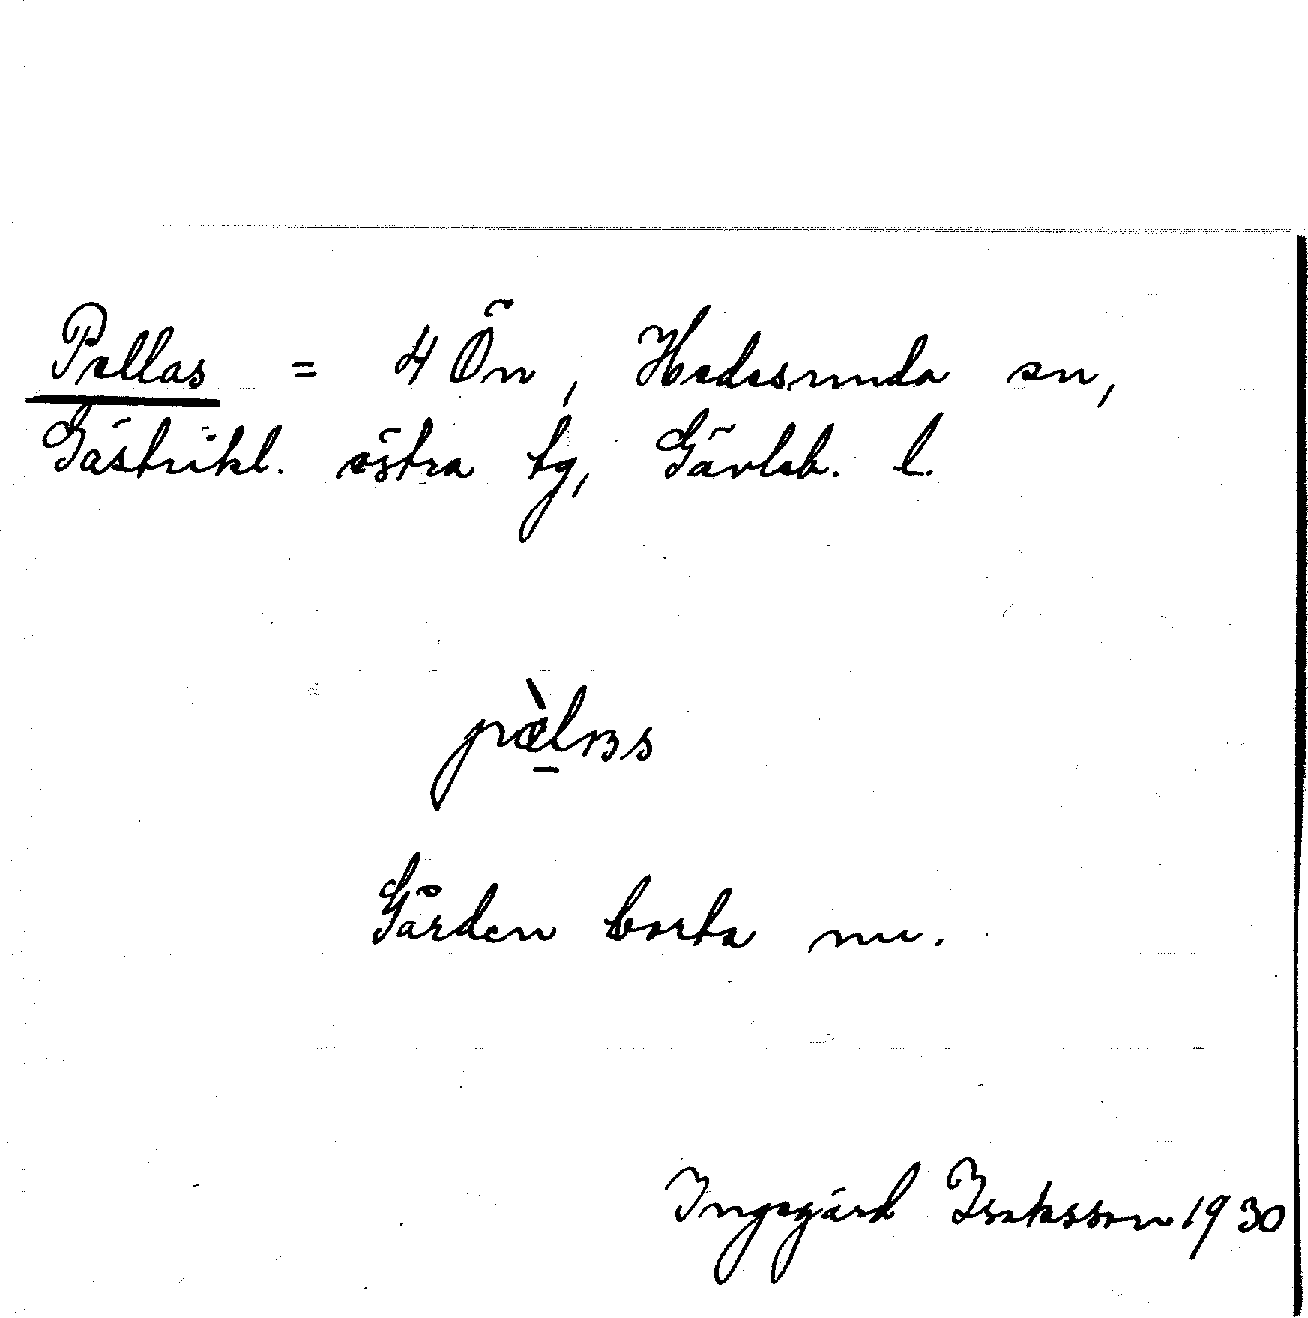 Pellas = 4 Ön, Hedesunda sn,
Gästrikl. östra tg, Gävleb. l.
Gården borta nu.
Ingegärd Isaksson 1930